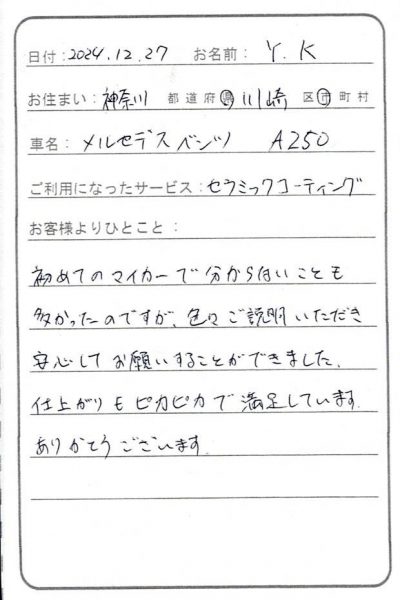 日付：2024.12.27 お名前：Y.K
お住まい：神奈川 都道府県 川崎 区市町村
車名：メルセデスベンツ A250
ご利用になったサービス：セラミックコーティング
お客様よりひとこと：
初めてのマイカーで分からないことも
多かったのですが、色々ご説明いただき
安心してお願いすることができました。
仕上がりもピカピカで満足しています。
ありがとうございます。